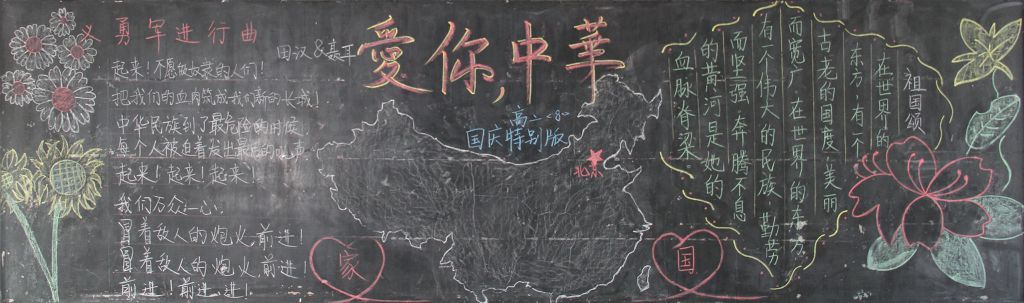 义勇军进行曲
田汉&聂耳
起来！不愿做奴隶的人们！
把我们的血肉筑成我们新的长城！
中华民族到了最危险的时候，
每个人被迫着发出最后的吼声
起来！起来！起来！
我们万众一心，
冒着敌人的炮火,前进！
冒着敌人的炮火,前进！
前进！前进、进！
愛你,中華
高二·8·
国庆特别版
北京
家
国
祖国颂
在世界的
东方 有一个
古老的国度,美丽
而宽广 在世界的东方
有一个伟大的民族 勤劳
而坚强 奔腾不息
的黄河是她的
血脉脊梁